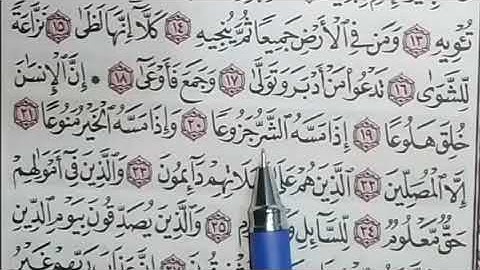 تُـْٔوِيهِ ١٣ وَمَن فِى ٱلْأَرْضِ جَمِيعًا ثُمَّ يُنجِيهِ ١٤ كَلَّآ إِنَّهَا لَظَىٰ ١٥ نَزَّاعَةً
لِّلشَّوَىٰ ١٦ تَدْعُوا۟ مَنْ أَدْبَرَ وَتَوَلَّىٰ ١٧ وَجَمَعَ فَأَوْعَىٰٓ ١٨ * إِنَّ ٱلْإِنسَٰنَ
خُلِقَ هَلُوعًا ١٩ إِذَا مَسَّهُ ٱلشَّرُّ جَزُوعًا ٢٠ وَإِذَا مَسَّهُ ٱلْخَيْرُ مَنُوعًا ٢١
إِلَّا ٱلْمُصَلِّينَ ٢٢ ٱلَّذِينَ هُمْ عَلَىٰ لَاتِهِمْ دَآئِمُونَ ٢٣ وَٱلَّذِينَ فِىٓ أَمْوَٰلِهِمْ
حَقٌّ مَّعْلُومٌ ٢٤ لِّلسَّآئِلِ وَ رُومِ ٢٥ وَٱلَّذِينَ يُصَدِّقُونَ بِيَوْمِ ٱلدِّينِ
عَذَابَ رَبِّهِمْ غَيْرُ